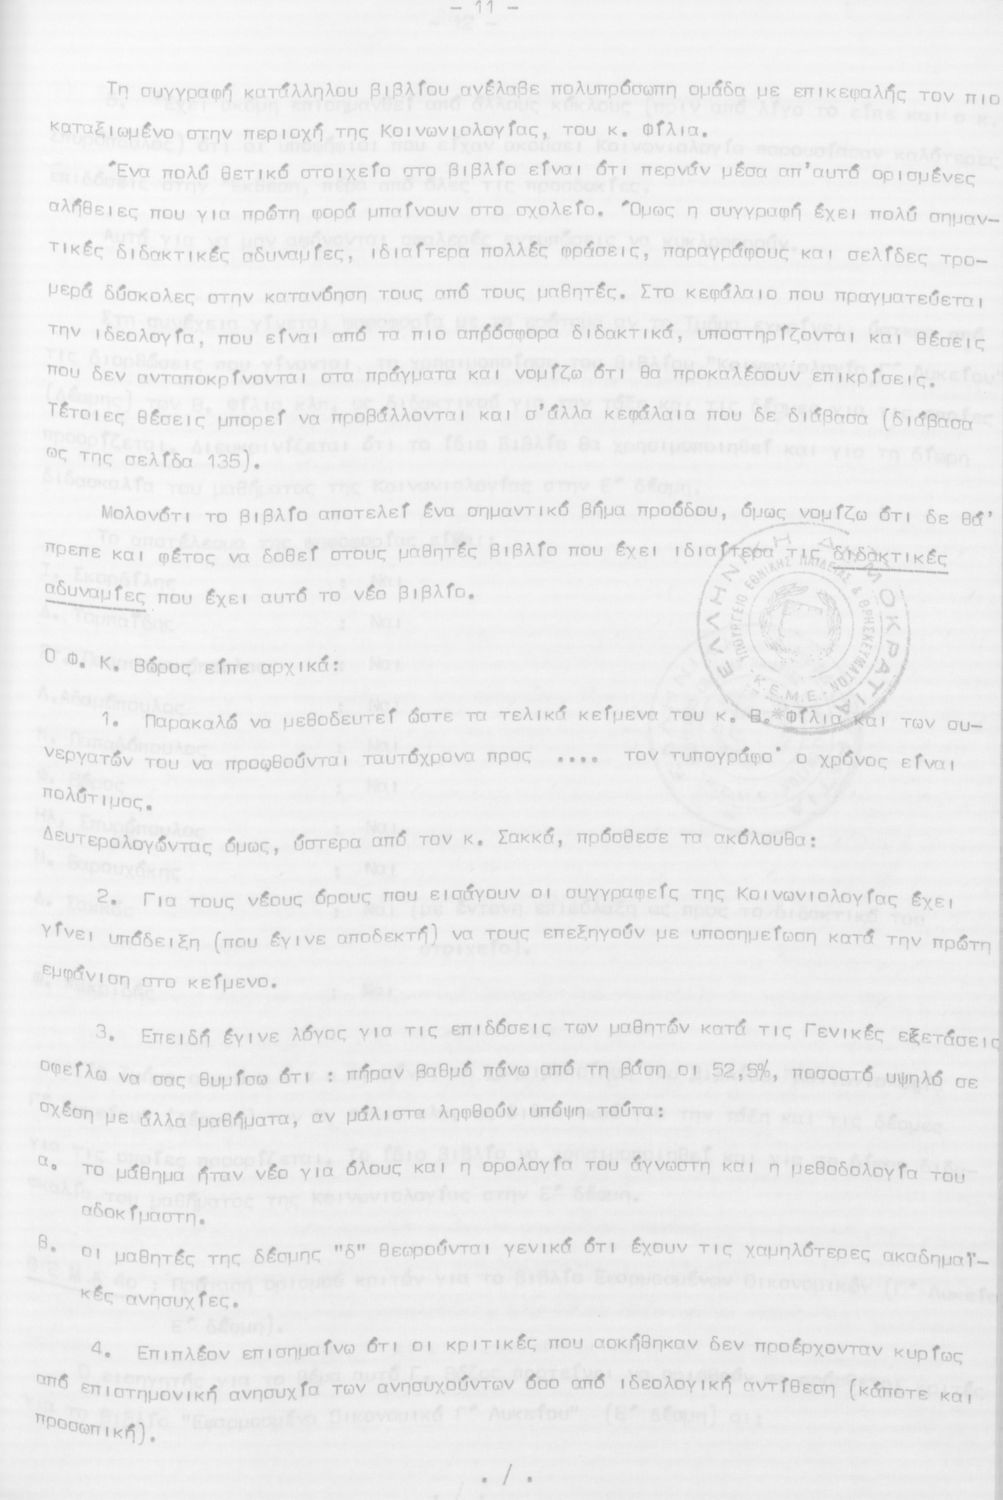 - 11 -
Τη συγγραφή κατάλληλου βιβλίου ανέλαβε πολυπρόσωπη ομάδα με επικεφαλής τον πιο
καταξιωμένο στην περιοχή της Κοινωνιολογίας, του κ. Φίλια.
Ένα πολύ θετικό στοιχείο στο βιβλίο είναι ότι περνάν μέσα απ'αυτό ορισμένες
αλήθειες που για πρώτη φορά μπαίνουν στο σχολείο. Όμως η συγγραφή έχει πολύ σημαν-
τικές διδακτικές αδυναμίες, ιδιαίτερα πολλές φράσεις, παραγράφους και σελίδες τρο-
μερά δύσκολες στην κατανόηση τους από τους μαθητές. Στο κεφάλαιο που πραγματεύεται
την ιδεολογία, που είναι από τα πιο απρόσφορα διδακτικά, υποστηρίζονται και θέσεις
που δεν ανταποκρίνονται στα πράγματα και νομίζω ότι θα προκαλέσουν επικρίσεις.
Τέτοιες θέσεις μπορεί να προβάλλονται και σ'άλλα κεφάλαια που δε διάβασα (διάβασα
ως της σελίδα 135).
Μολονότι το βιβλίο αποτελεί ένα σημαντικό βήμα προόδου, όμως νομίζω ότι δε θά'
πρεπε και φέτος να δοθεί στους μαθητές βιβλίο που έχει ιδιαίτερα τις διδακτικές
αδυναμίες που έχει αυτό το νέο βιβλίο.
ΕΛΛΗΝΙΚΗ ΔΗΜΟΚΡΑΤΙΑ
ΥΠΟΥΡΓΕΙΟ ΕΘΝΙΚΗΣ ΠΑΙΔΕΙΑΣ & ΘΡΗΣΚΕΥΜΑΤΩΝ
Κ.Ε.Μ.Ε.
Ο Φ. Κ. Βώρος είπε αρχικά:
1. Παρακαλώ να μεθοδευτεί ώστε τα τελικά κείμενα του κ. Β. Φίλια και των συ-
νεργατών του να προωθούνται ταυτόχρονα προς .... τον τυπογράφο· ο χρόνος είναι
πολύτιμος.
Δευτερολογώντας όμως, ύστερα από τον κ. Σακκά, πρόσθεσε τα ακόλουθα:
2. Για τους νέους όρους που εισάγουν οι συγγραφείς της Κοινωνιολογίας έχει
γίνει υπόδειξη (που έγινε αποδεκτή) να τους επεξηγούν με υποσημείωση κατά την πρώτη
εμφάνιση στο κείμενο.
3. Επειδή έγινε λόγος για τις επιδόσεις των μαθητών κατά τις Γενικές εξετάσεις
οφείλω να σας θυμίσω ότι : πήραν βαθμό πάνω από τη βάση οι 52,5%, ποσοστό υψηλό σε
σχέση με άλλα μαθήματα, αν μάλιστα ληφθούν υπόψη τούτα:
α. το μάθημα ήταν νέο για όλους και η ορολογία του άγνωστη και η μεθοδολογία του
αδοκίμαστη.
β. οι μαθητές της δέσμης "δ" θεωρούνται γενικά ότι έχουν τις χαμηλότερες ακαδημαϊ-
κές ανησυχίες.
4. Επιπλέον επισημαίνω ότι οι κριτικές που ασκήθηκαν δεν προέρχονταν κυρίως
από επιστημονική ανησυχία των ανησυχούντων όσο από ιδεολογική αντίθεση (κάποτε και
προσωπική).
. / .